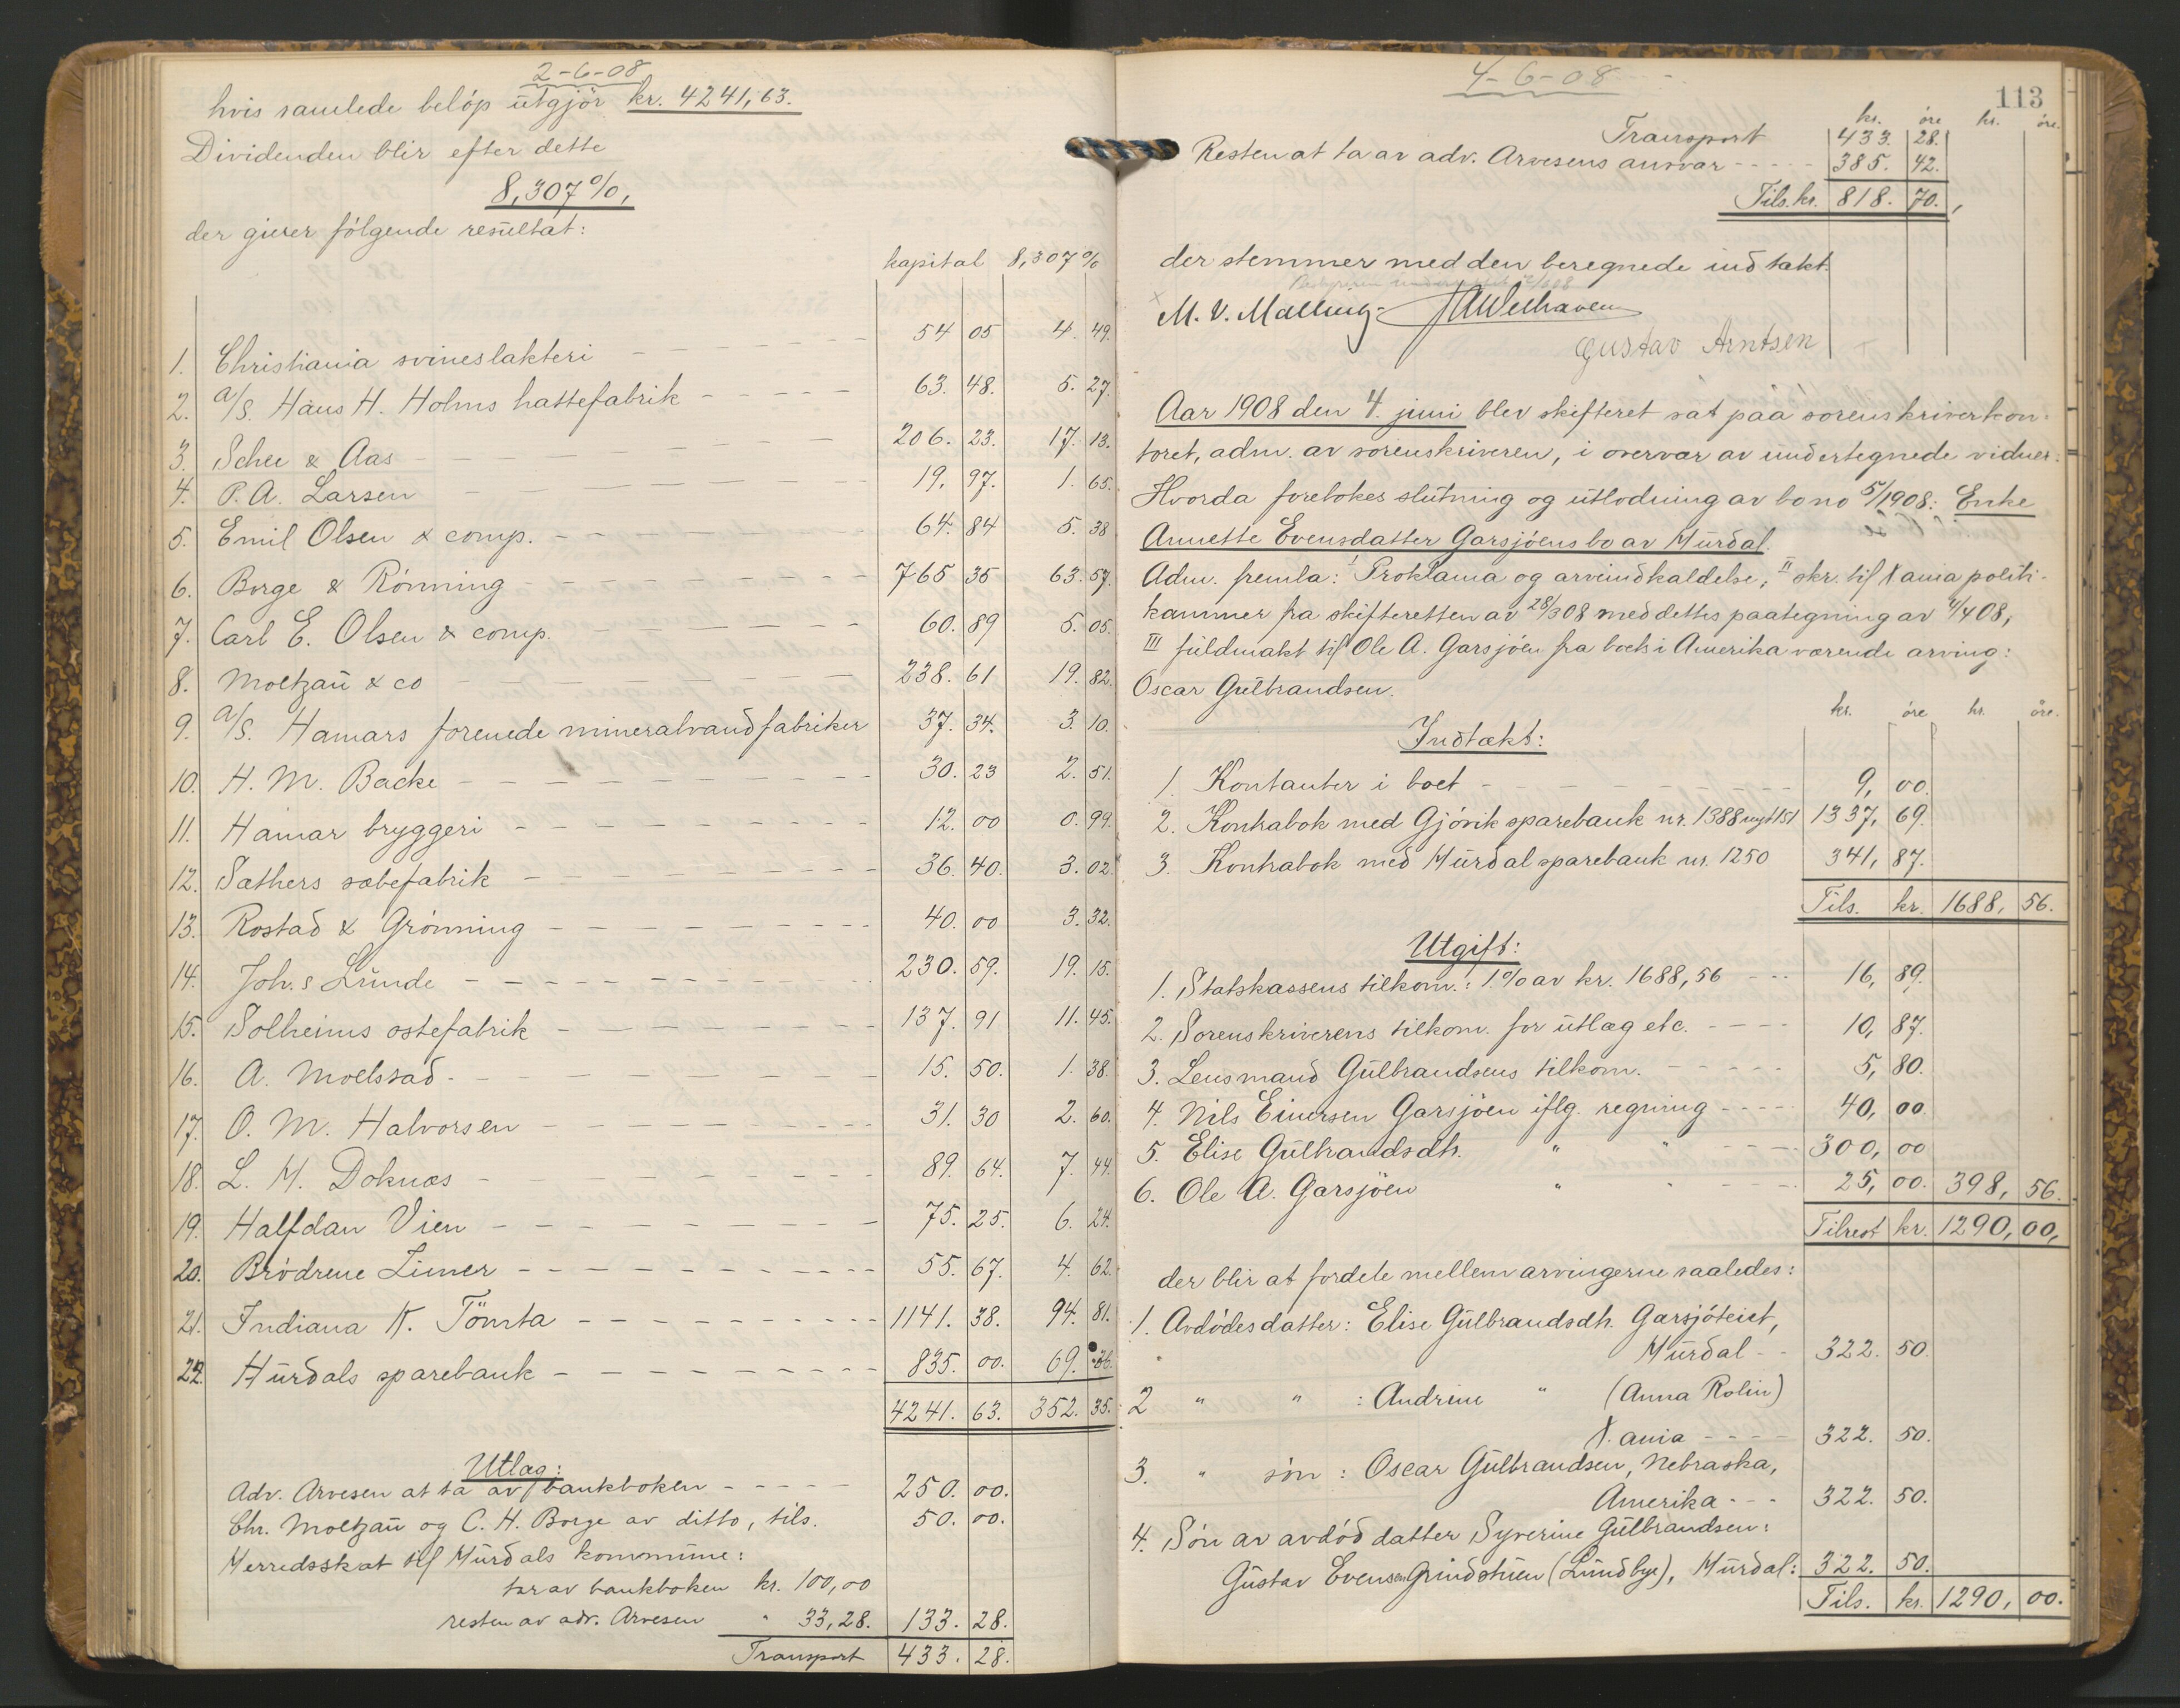 2-6-08
hvis samlede beløp utgjör kr. 4241,63.
Dividenden blir efter dette
8,307%,
der giver følgende resultat:
kapital 8,307%
1. Christiania svineslakteri 54 05 4. 49.
2. A/S. Hans H. Holms hattefabrik 63. 48. 5. 27.
3. Schee & Aas 206. 23. 17. 13.
4. P. A. Larsen 19. 97. 1. 65.
5. Emil Olsen & comp. 64. 84 5. 38
6. Borge & Rönning 765 35 63. 57.
7. Carl E. Olsen & comp. 60. 89 5. 05.
8. Moltzau & co 238. 61 19. 82.
9. A/S. Hamars forenede mineralvandfabriker 37. 34. 3. 10.
10. H. M. Backe 30. 23 2. 51.
11. Hamar bryggeri 12. 00 0. 99.
12. Sæthers sæbefabrik 36. 40. 3. 02.
13. Rostad & Grönning 40. 00 3. 32.
14. Joh.s Lunde 230. 59. 19. 15.
15. Solheims ostefabrik 137. 91 11. 45.
16. A. Moelstad 15. 50. 1. 38.
17. O. M. Halvorsen 31. 30 2. 60.
18. L. H. Doknæs 89. 64. 7. 44.
19. Halfdan Vien 75. 25. 6. 24.
20. Brödrene Limer 55. 67. 4. 62.
21. Indiana K. Tömta 1141. 38. 94. 81.
22. Hurdals sparebank 835. 00. 69. 36.
4241. 63. 352. 35.
Utlæg:
Adv. Arvesen at ta av bankboken 250. 00.
Chr. Moltzau og C. H. Borge av ditto, tils. 50. 00.
Herredsskat til Hurdals kommune:
tar av bankboken kr. 100,00
resten av adv. Arvesen " 33,28. 133. 28.
Transport 433. 28.
4-6-08
113
kr. öre kr. öre.
Transport 433. 28.
Resten at ta av adv. Arvesens ansvar 385. 42.
Tils. kr. 818. 70.,
der stemmer med den beregnede indtækt.
M. V. Malling. Welhaven
Gustav Arntsen
Aar 1908 den 4. juni blev skifteret sat paa sorenskriverkon-
toret, adm. av sorenskriveren, i overvær av undertegnede vidner.
Hvorda foretokes slutning og utlodning av bo no 5/1908: Enke
Annette Evensdatter Garsjöens bo av Hurdal.
Adm. fremla: I Proklama og arveindkaldelse, II skr. til Xania politi-
kammer fra skifteretten av 28/3 08 med dettes paategning av 4/4 08,
III fuldmakt til Ole A. Garsjöen fra boets i Amerika værende arving:
Oscar Gulbrandsen.
kr. öre kr. öre.
Indtækt:
1. Kontanter i boet 9, 00.
2. Kontrabok med Gjövik sparebank nr. 1388 nyt 151 1337, 69.
3. Kontrabok med Hurdal sparebank nr. 1250 341, 87.
Tils. kr. 1688, 56.
Utgift:
1. Statskassens tilkom.: 1% av kr. 1688,56 16, 89.
2. Sorenskriverens tilkom. for utlæg etc. 10, 87.
3. Lensmand Gulbrandsens tilkom. 5, 80.
4. Nils Einersen Garsjöen iflg. regning 40, 00.
5. Elise Gulbrandsdtr. " " 300, 00
6. Ole A. Garsjöen " " 25, 00. 398, 56.
Tilrest kr. 1290, 00,
der blir at fordele mellem arvingerne saaledes:
1. Avdödes datter: Elise Gulbrandsdtr. Garsjöteiet,
Hurdal 322. 50.
2 " " : Andrine " (Anna Rolin)
Xania 322. 50.
3. " sön: Oscar Gulbrandsen, Nebraska,
Amerika 322. 50.
4. Sön av avdöd datter Syverine Gulbrandsen:
Gustav Evensen Grindstuen (Lundbye), Hurdal: 322. 50.
Tils. kr. 1290, 00.